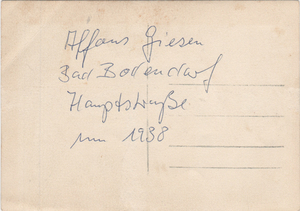 Alfons Giesen
Bad Bodendorf
Hauptstraße
um 1938